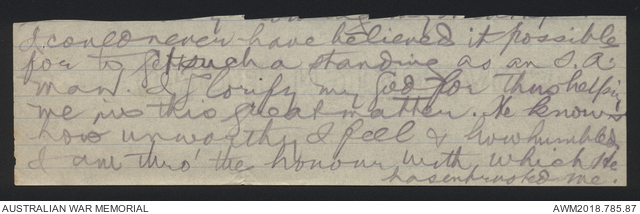 I could never have believed it possible
for to get such a standing as an S.A.
man. I glorify my God for thus helpin
me in this great matter. He knows
how unworthy I feel & how humbled
I am thro' the honour with which He
has entrusted me.
AUSTRALIAN WAR MEMORIAL
AWM2018.785.87